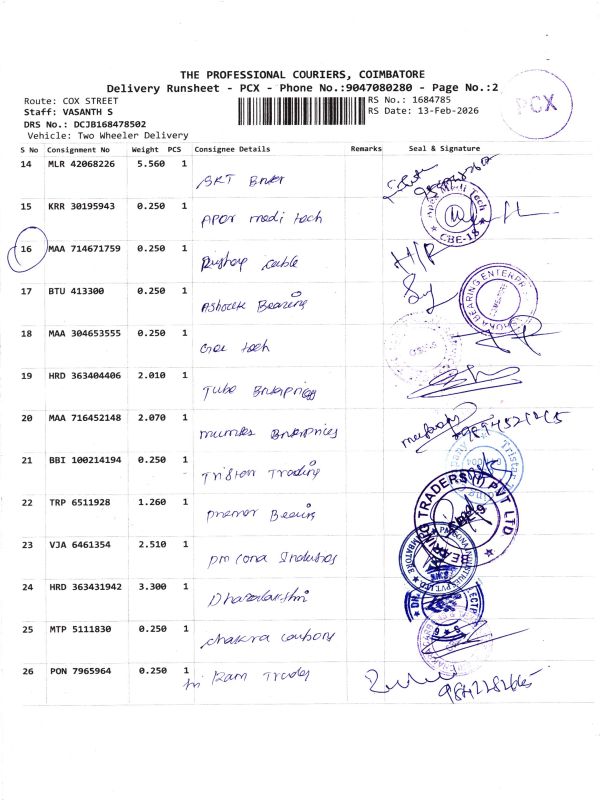 THE PROFESSIONAL COURIERS, COIMBATORE
Delivery Runsheet - PCX - Phone No.:9047080280 - Page No.:2
Route: COX STREET
Staff: VASANTH S
DRS No.: DCJB168478502
Vehicle: Two Wheeler Delivery
RS No.: 1684785
RS Date: 13-Feb-2026
PCX
S No Consignment No Weight PCS Consignee Details Remarks Seal & Signature
14 MLR 42068226 5.560 1 SKT
15 KRR 30195943 0.250 1 Apex medi tech
Apex Medi Tech
CBE-18
16 MAA 714671759 0.250 1 cable
H/R
17 BTU 413300 0.250 1 Ashock Bearing
BEARING ENTERPR
18 MAA 304653555 0.250 1 tech
19 HRD 363404406 2.010 1 Tube Enterprises
20 MAA 716452148 2.070 1 Enterprices
21 BBI 100214194 0.250 1 Tristar Trading
Tristar
22 TRP 6511928 1.260 1 Bearing
BEARING TRADERS (I) PVT LTD
23 VJA 6461354 2.510 1 Pm cona Industries
24 HRD 363431942 3.300 1
25 MTP 5111830 0.250 1 chakra carbons
26 PON 7965964 0.250 1 Sri Ram Trades
9842282665